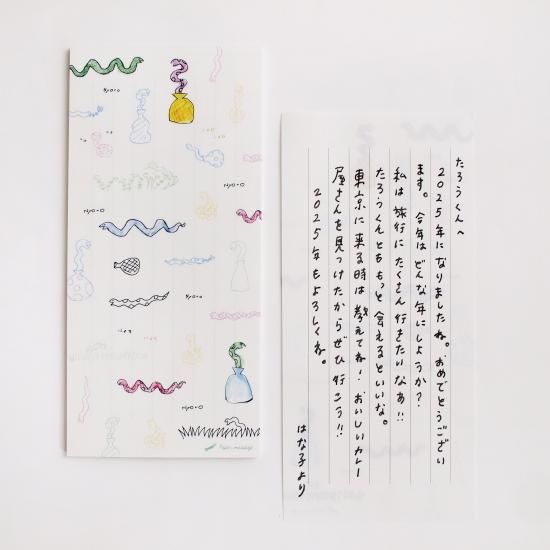 たろうくんへ
2025年になりましたね。おめでとうござい
ます。今年はどんな年にしようか?
私は旅行にたくさん行きたいなあ!!
たろうくんとももっと会えるといいな。
東京に来る時は教えてね！おいしいカレー
屋さんを見つけたからぜひ行こう!!
2025年もよろしくね。
はな子より